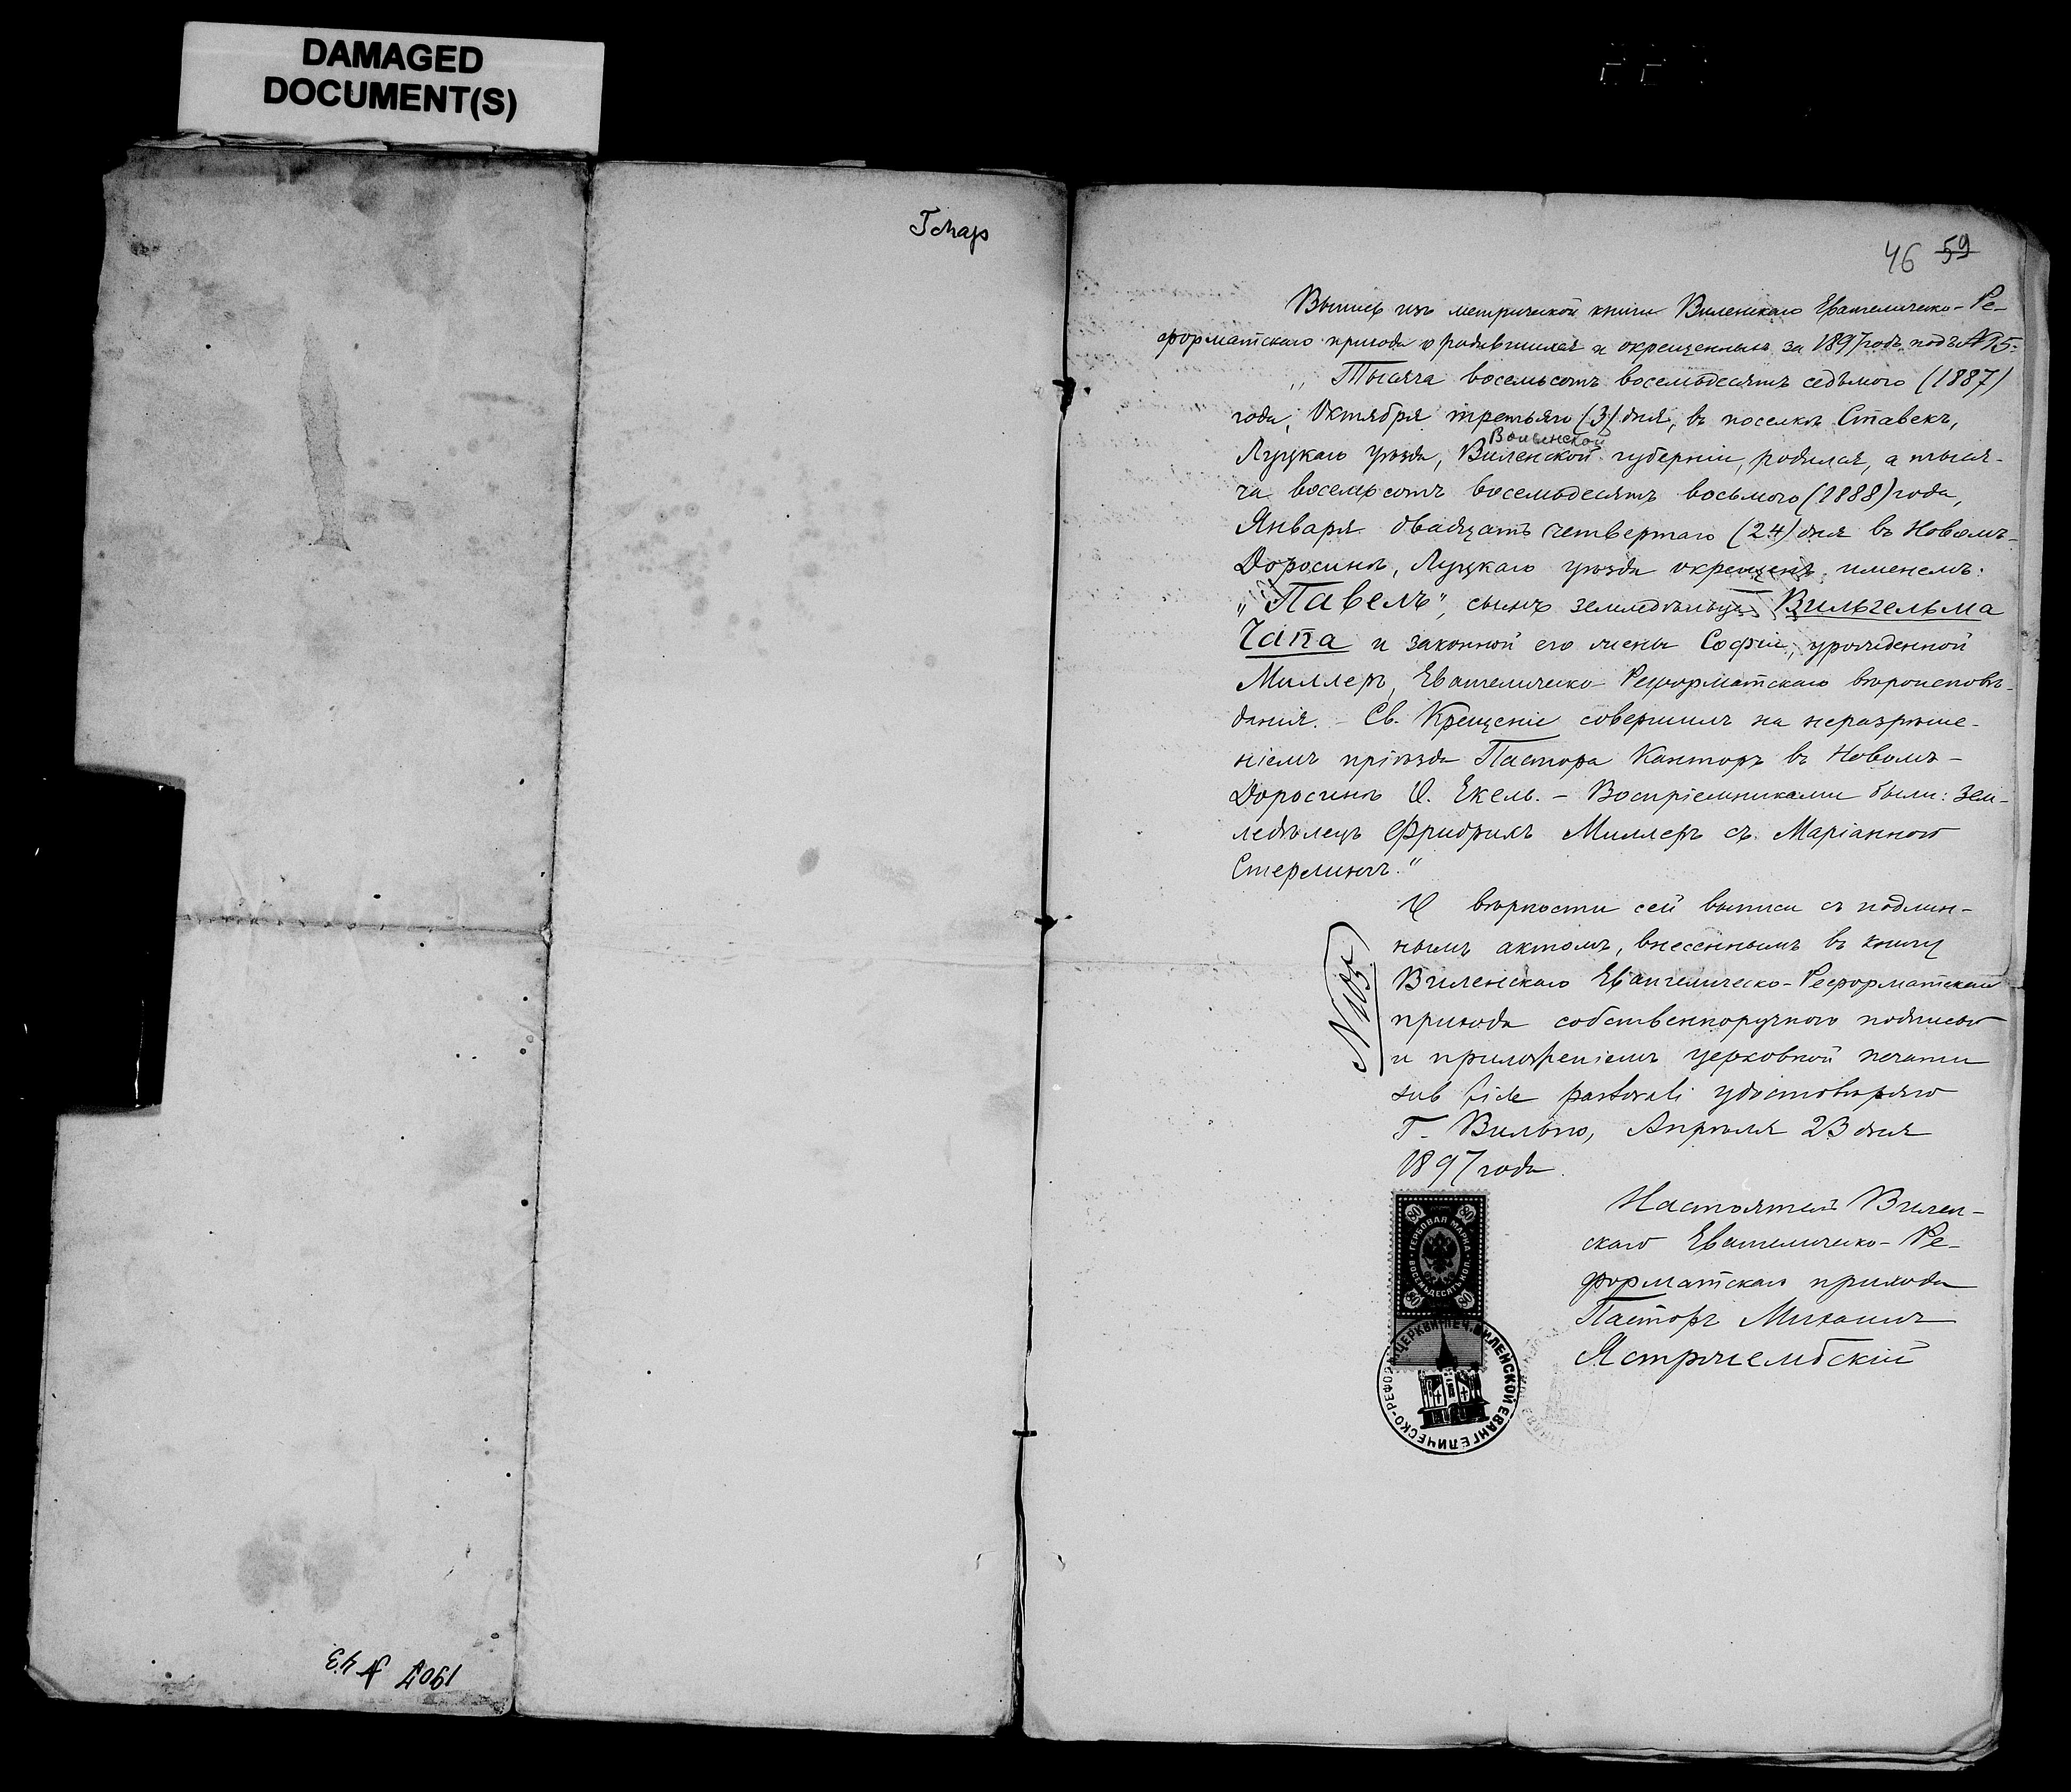 DAMAGED
DOCUMENT(S)
46 59
Выпись изъ метрической книги Виленскаго Евангелическо-Ре-
форматскаго прихода о родившихся и окрещенныхъ за 1897 годъ подъ №15:
„Тысяча восемьсотъ восемьдесятъ седьмого (1887)
года, Октября третьяго (3) дня, въ поселкѣ Ставекъ,
Волынской
Луцкаго уѣзда, Виленской губерніи, родился, а тыся-
ча восемьсотъ восемьдесятъ восьмого (1888) года,
Января двадцать четвертаго (24) дня въ Новомъ-
Доросинѣ, Луцкаго уѣзда окрещенъ именемъ:
„Павелъ", сынъ земледѣльца Вильгельма
Чапа и законной его жены Софіи, урожденной
Миллеръ, Евангелическо-Реформатскаго вѣроисповѣ-
данія. - Св. Крещеніе совершилъ за
ніемъ пріѣзда Пастора Канторъ въ Новомъ-
Доросинѣ Екель. - Воспріемниками были: зем-
ледѣлецъ Фридрихъ Миллеръ съ Маріанною
О вѣрности сей выписи съ подлин-
нымъ актомъ, внесеннымъ въ книгу
Виленскаго Евангелическо-Реформатскаго
прихода собственноручною подписью
и приложеніемъ церковной печати
sub fide pastorali удостовѣряю
Г. Вильно, Апрѣля 23 дня
1897 года.
Настоятель Вилен-
скаго Евангелическо-Ре-
форматскаго прихода
Пасторъ Михаилъ
Ястржембскій
80 80
ГЕРБОВАЯ МАРКА
ВОСЕМЬДЕСЯТЪ КОП.
80 80
ПЕЧ. ВИЛЕНСКОЙ ЕВАНГЕЛИЧЕСКО-РЕФОРМ. ЦЕРКВИ
1907 № 43